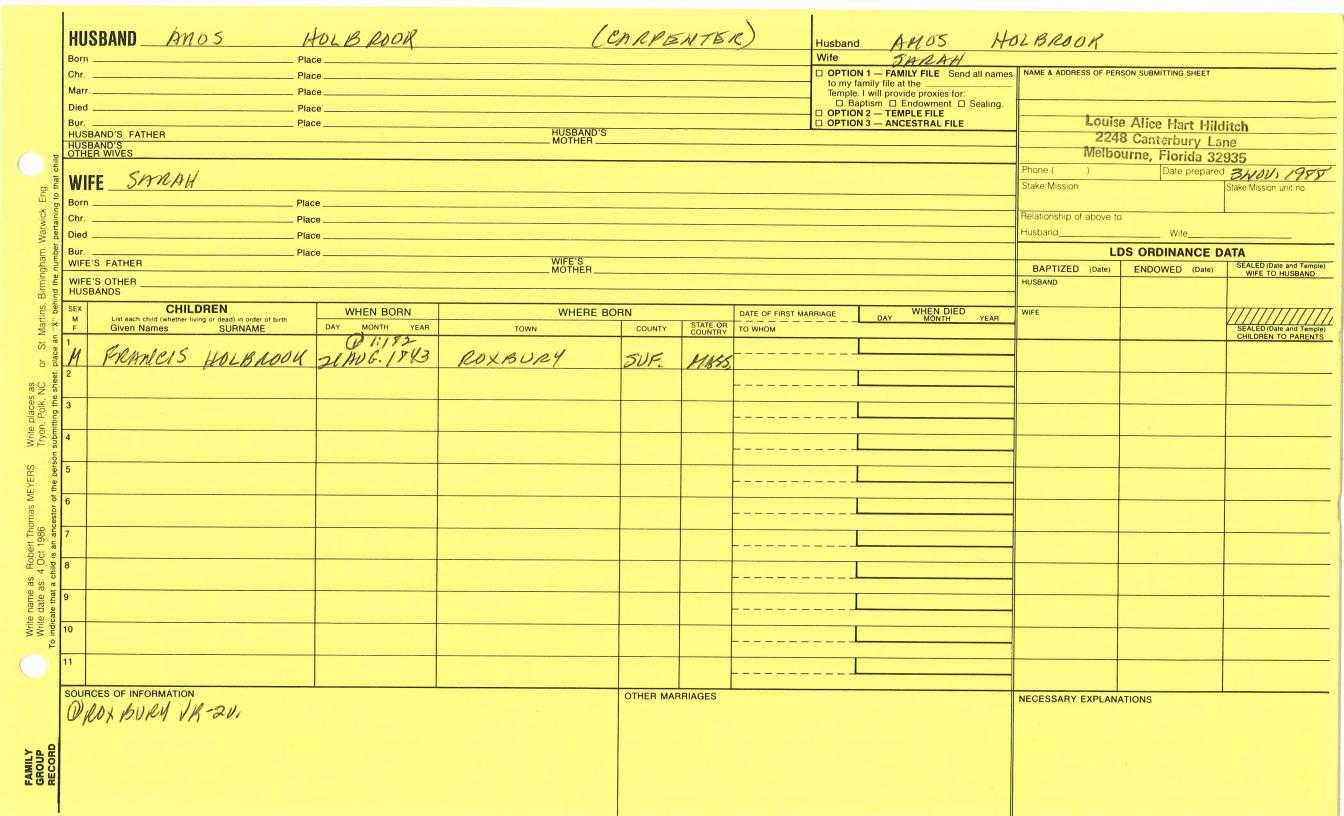 HUSBAND AMOS HOLBROOK (CARPENTER)
Born Place
Chr. Place
Marr Place
Died Place
Bur. Place
HUSBAND'S FATHER HUSBAND'S MOTHER
HUSBAND'S OTHER WIVES
Husband AMOS HOLBROOK
Wife SARAH
☐ OPTION 1 — FAMILY FILE Send all names
to my family file at the
Temple. I will provide proxies for:
☐ Baptism ☐ Endowment ☐ Sealing.
☐ OPTION 2 — TEMPLE FILE
☐ OPTION 3 — ANCESTRAL FILE
NAME & ADDRESS OF PERSON SUBMITTING SHEET
Louise Alice Hart Hilditch
2248 Canterbury Lane
Melbourne, Florida 32935
Phone ( ) Date prepared 3 NOV. 1988
Stake/Mission Stake/Mission unit no.
Relationship of above to
Husband Wife
WIFE SARAH
Born Place
Chr. Place
Died Place
Bur. Place
WIFE'S FATHER WIFE'S MOTHER
WIFE'S OTHER HUSBANDS
LDS ORDINANCE DATA
BAPTIZED (Date) ENDOWED (Date) SEALED (Date and Temple) WIFE TO HUSBAND
HUSBAND
WIFE
SEALED (Date and Temple) CHILDREN TO PARENTS
SEX M F
CHILDREN
List each child (whether living or dead) in order of birth
Given Names SURNAME
WHEN BORN
DAY MONTH YEAR
WHERE BORN
TOWN COUNTY STATE OR COUNTRY
DATE OF FIRST MARRIAGE
TO WHOM
WHEN DIED
DAY MONTH YEAR
① 1:182
1 M FRANCIS HOLBROOK 21 AUG. 1843 ROXBURY SUF. MASS.
2
3
4
5
6
7
8
9
10
11
SOURCES OF INFORMATION
① ROXBURY VR-2v.
OTHER MARRIAGES
NECESSARY EXPLANATIONS
Write name as Robert Thomas MEYERS Write places as Tryon, Polk, NC or St Martins, Birmingham, Warwick, Eng
Write date as 4 Oct 1986
To indicate that a child is an ancestor of the person submitting the sheet, place an "X" behind the number pertaining to that child
FAMILY
GROUP
RECORD